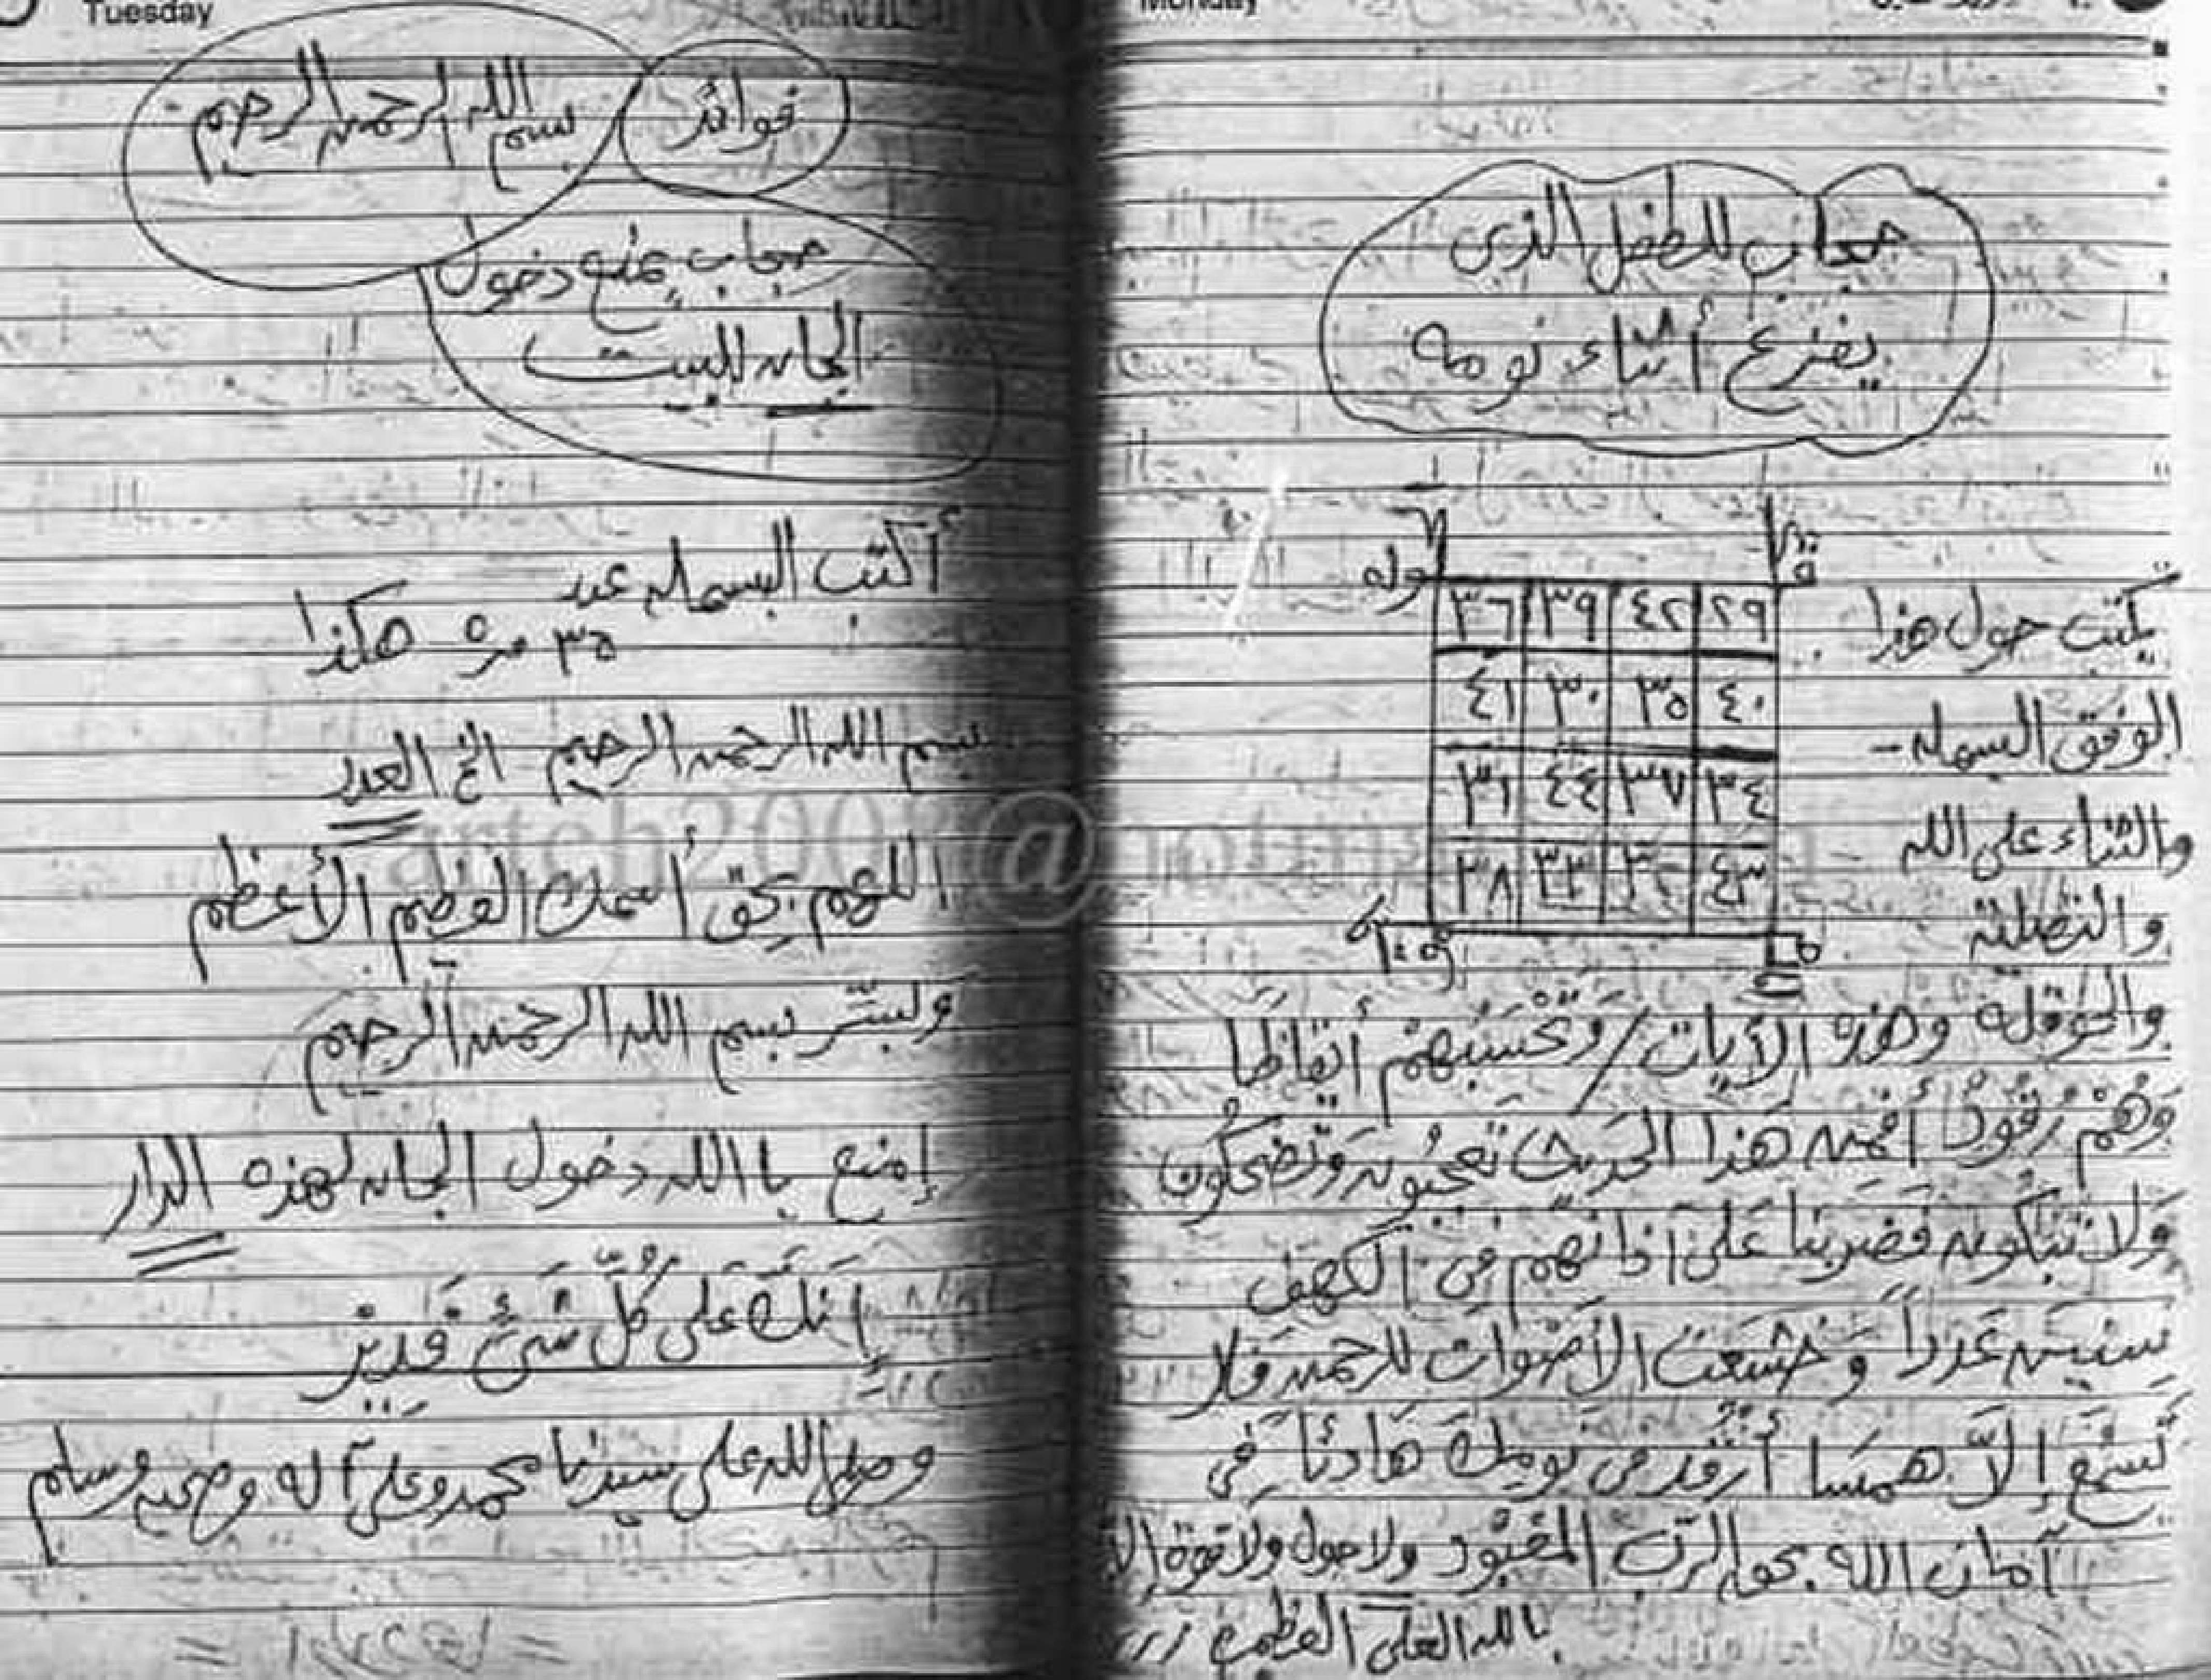 Monday
حجاب للطفل الذي
يفزع أثناء نومه
قوله
٣٦ ٣٩ ٤٢ ٢٩
٤١ ٣٠ ٣٥ ٤٠
٣١ ٤٤ ٣٧ ٣٤
٣٨ ٣٣ ٤٣
يكتب حول هذا
الوفق البسمله
والثناء على الله
والتصلية
والحوقلة وهذه الآيات / وَتَحْسَبُهُمْ أيقاظا
وَهُمْ رُقُودٌ أفمن هَذا الحَديث تَعْجَبُونَ وَتَضْحَكُون
وَلا تَبْكُون فَضَربنا عَلى اذانهم في الكهف
سنين عَدداً وَخَشَعت الأصْوات للرحمن فَلا
تَسْمَع إلاّ هَمْسَا أرقد في نومك هَادئا في
أمان الله بحق الرب المعْبُود ولا حول ولا قوة إلا
بالله العلي العظيم //
Tuesday
فوائد
بسم الله الرحمن الرحيم
حجاب يمنع دخول
الجان للبيت
أكتب البسمله عدد
٣٥ مره هكذا
بسم الله الرحمن الرحيم الخ العدد
اللهم بحق أسمك العظيم الأعظم
وبسر بسم الله الرحمن الرحيم
إمنع يا الله دخول الجان لهذه الدار
إنَكَ عَلى كُلّ شَئ قَدِيْر
وصلى الله على سيدنا محمد وعلى آله وصحبه وسلم
arteh2007@hotm